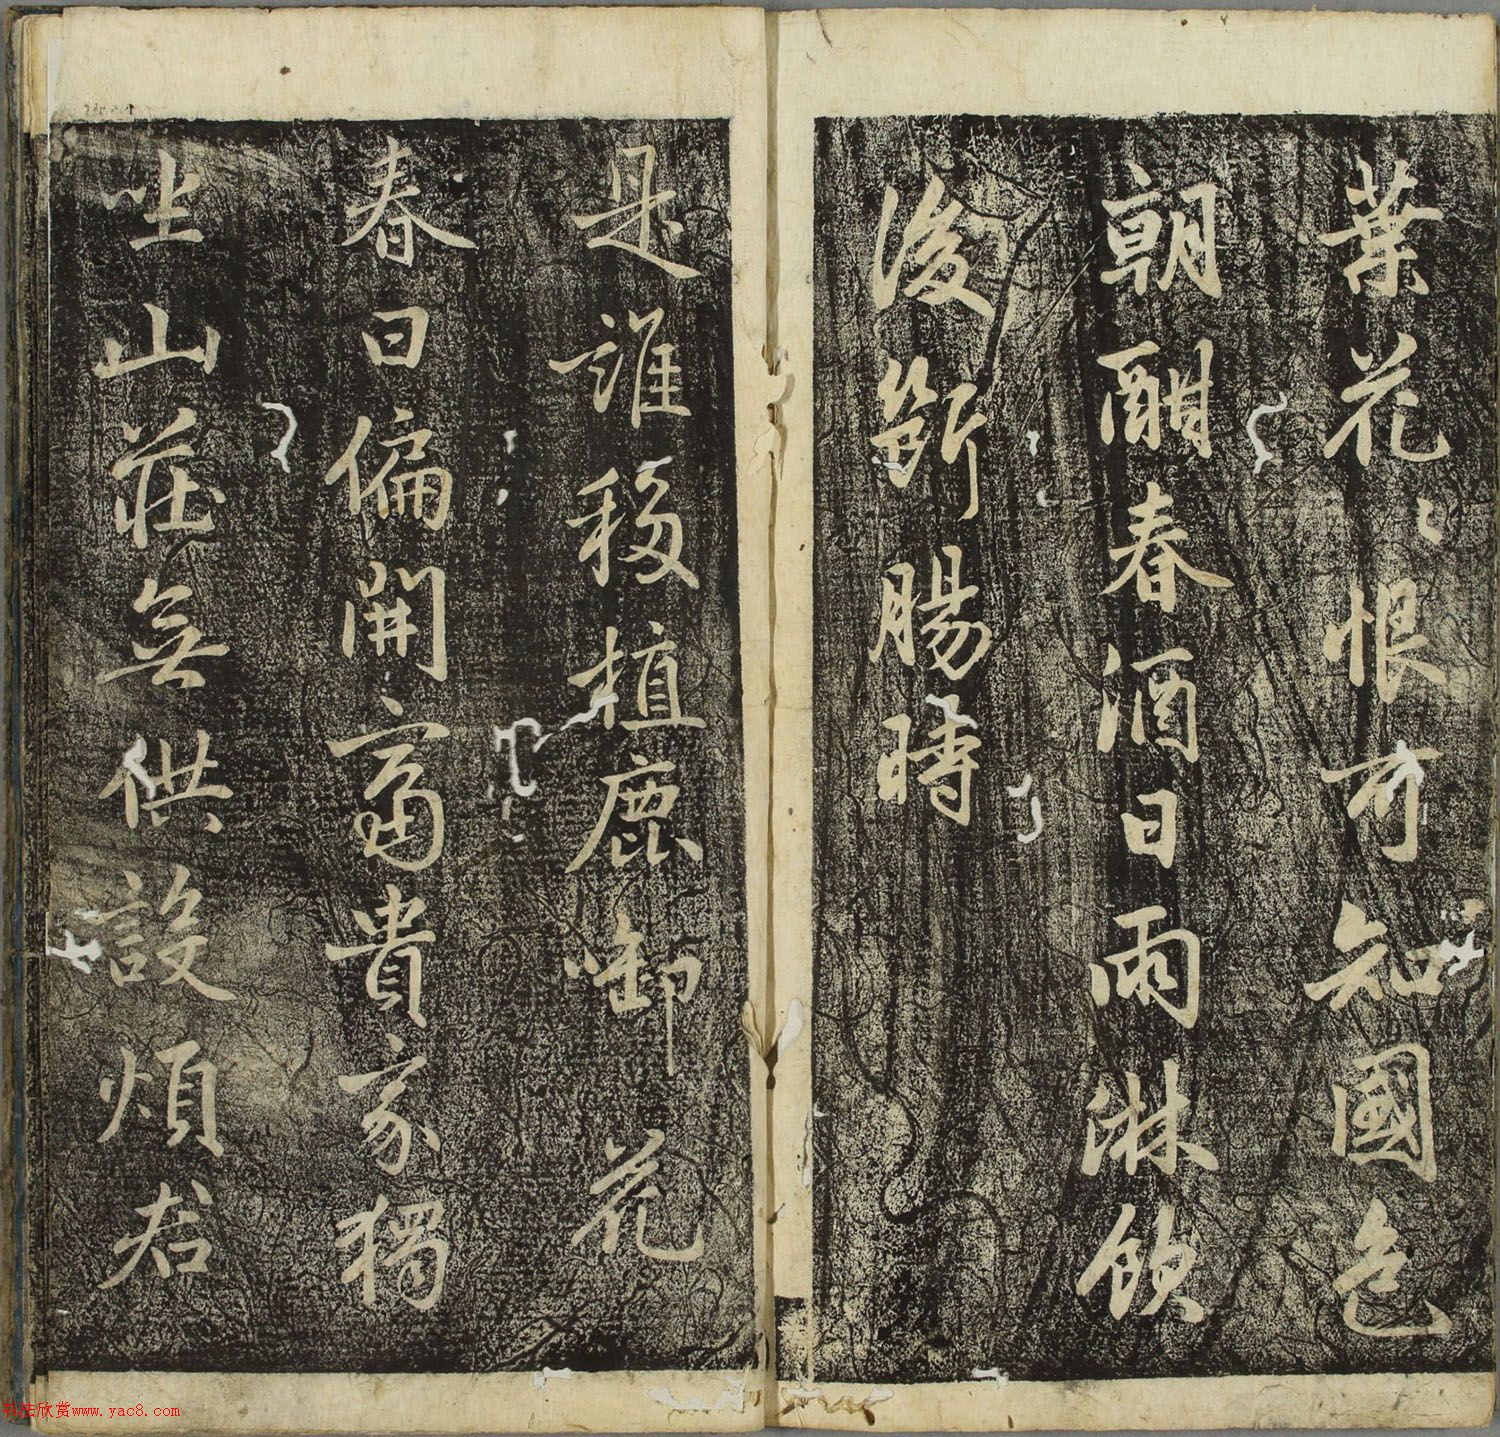 葉花〻恨可知國色
朝酣春酒日雨淋飲
後斷腸時
是誰移植鹿㘅花
春日偏開富貴家獨
坐山莊無供設煩君
书法欣赏www.yac8.com